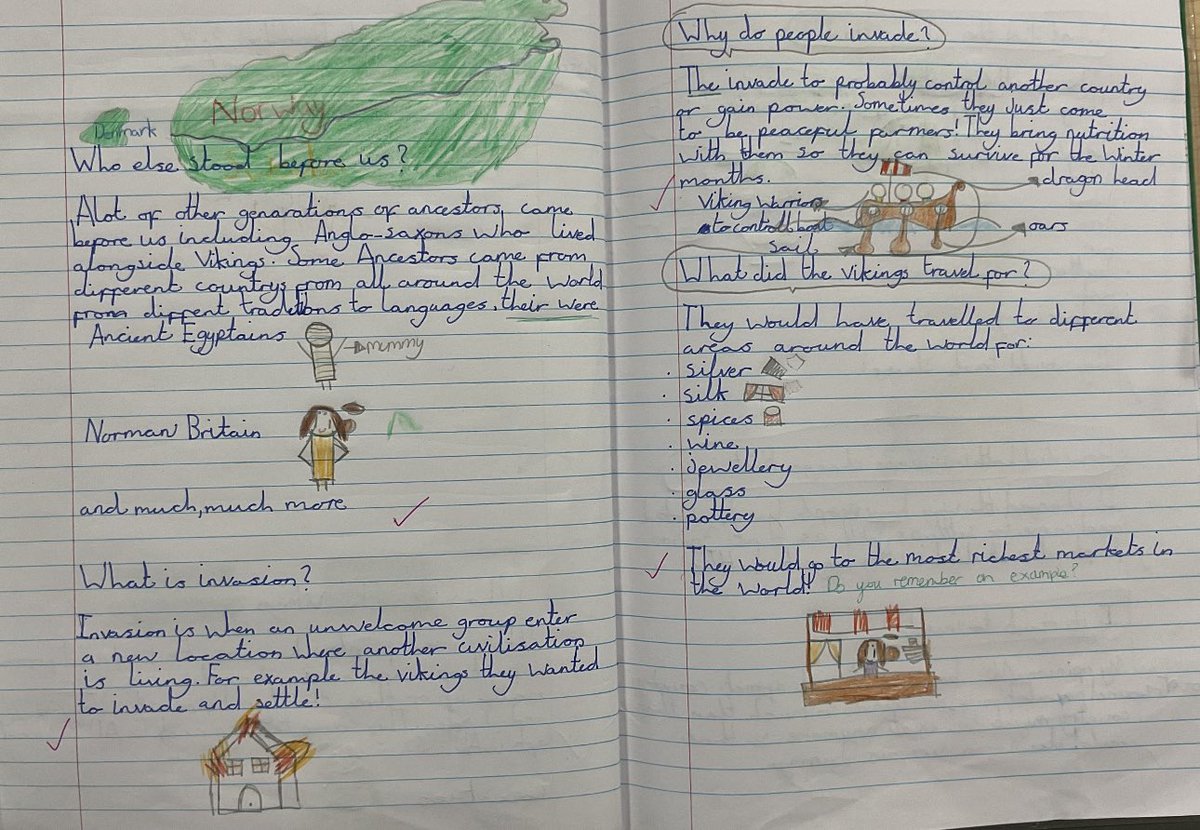 Norwhy
Denmark
Who else stood before us?
Alot of other genarations of ancestors, came
before us including Anglo-saxons who lived
alongside Vikings. Some Ancestors came from
different countrys from all around the world
from diffrent traditions to languages, their were
Ancient Egyptains
mummy
Norman Britain
and much, much more
What is invasion?
Invasion is when an unwelcome group enter
a new location where another civilisation
is living. For example the vikings they wanted
to invade and settle!
Why do people invade?
The invade to probably control another country
or gain power. Sometimes they just come
to be peaceful farmers! They bring nutrition
with them so they can survive for the Winter
months.
dragon head
Viking Warriors
to controll boat
oars
sail
What did the vikings travel for?
They would have, travelled to different
areas around the world for:
· silver
· silk
· spices
· wine
· jewellery
· glass
· pottery
They would go to the most richest markets in
the world! Do you remember an example?